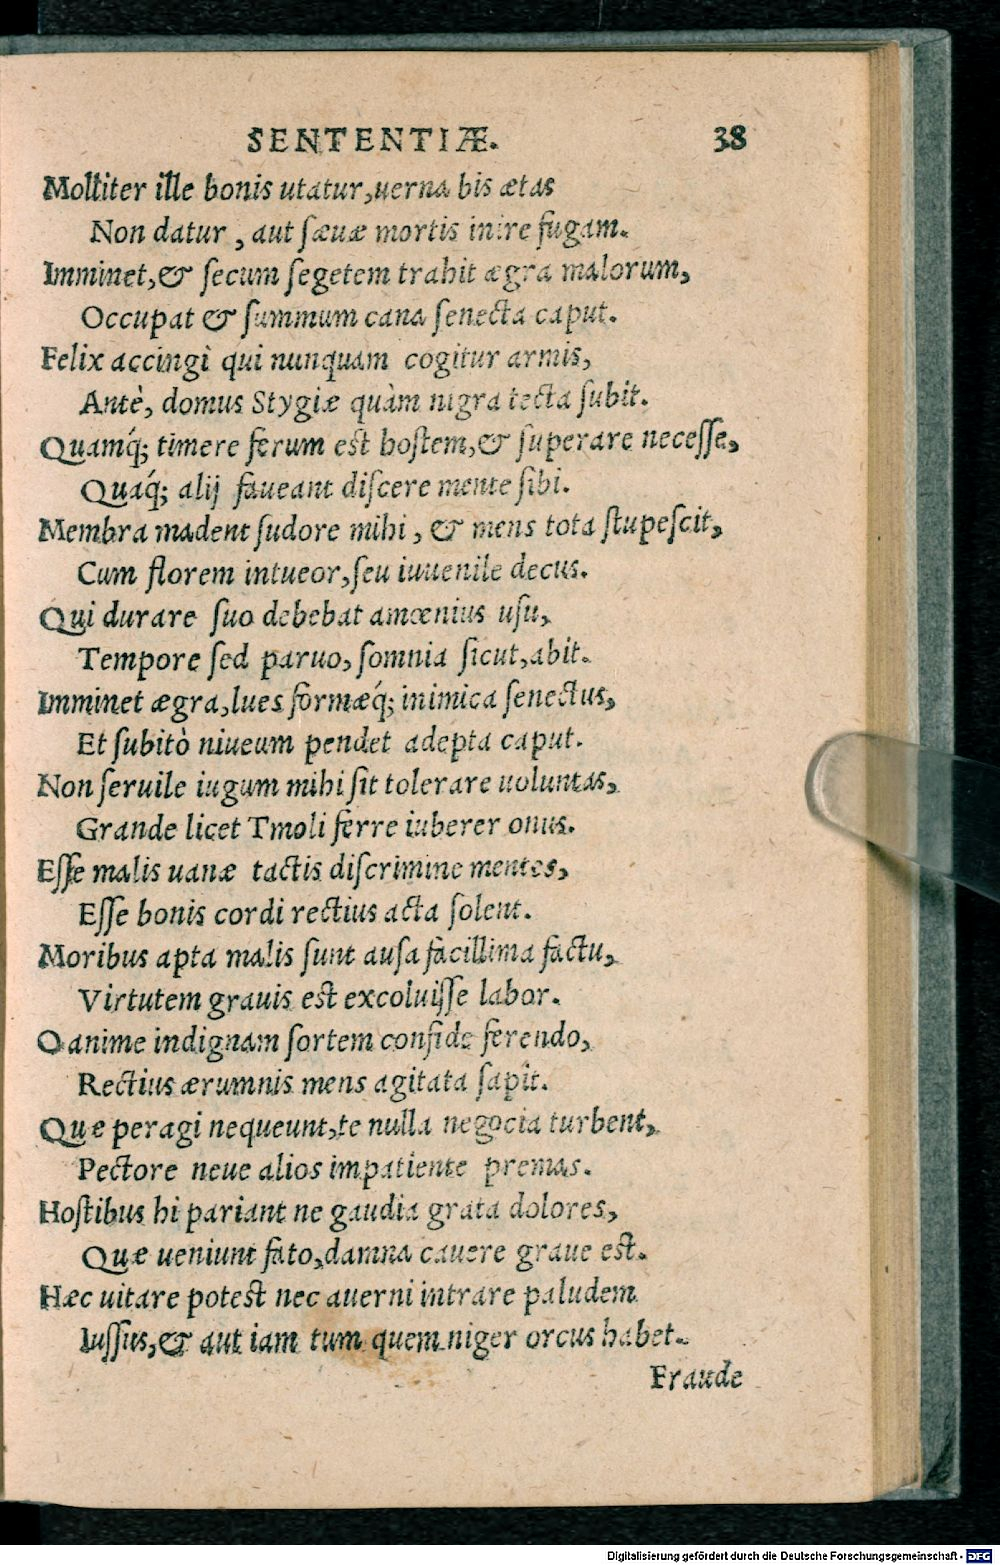 SENTENTIÆ. 38
Molliter ille bonis utatur, uerna bis ætas
Non datur, aut ſæuæ mortis inire fugam.
Imminet, & ſecum ſegetem trahit ægra malorum,
Occupat & ſummum cana ſenecta caput.
Felix accingì qui nunquam cogitur armis,
Antè, domus Stygiæ quàm nigra tecta ſubit.
Quamq́; timere ferum est hostem, & ſuperare neceſſe,
Quaq́; alij faueant diſcere mente ſibi.
Membra madent ſudore mihi, & mens tota ſtupeſcit,
Cum florem intueor, ſeu iuuenile decus.
Qui durare ſuo debebat amœnius uſu,
Tempore ſed paruo, ſomnia ſicut, abit.
Imminet ægra, lues formæq́; inimica ſenectus,
Et ſubitò niueum pendet adepta caput.
Non ſeruile iugum mihi ſit tolerare uoluntas,
Grande licet Tmoli ferre iuberer onus.
Eſſe malis uanæ tactis diſcrimine mentes,
Eſſe bonis cordi rectius acta ſolent.
Moribus apta malis ſunt auſa facillima factu,
Virtutem grauis est excoluiſſe labor.
O anime indignam ſortem confide ferendo,
Rectius ærumnis mens agitata ſapit.
Quæ peragi nequeunt, te nulla negocia turbent,
Pectore neue alios impatiente premas.
Hoſtibus hi pariant ne gaudia grata dolores,
Quæ ueniunt fato, damna cauere graue est.
Hæc uitare potest nec auerni intrare paludem
Iuſſus, & aut iam tum quem niger orcus habet.
Fraude
Digitalisierung gefördert durch die Deutsche Forschungsgemeinschaft - DFG